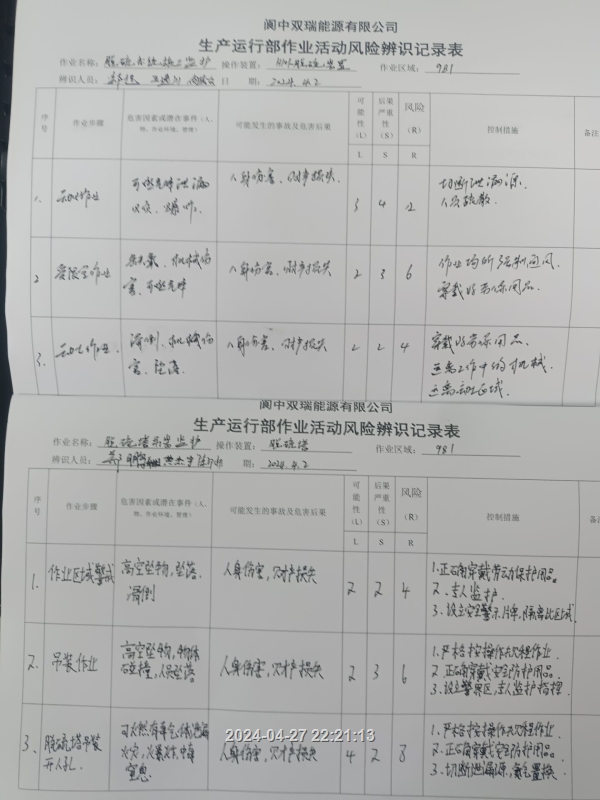 阆中双瑞能源有限公司
生产运行部作业活动风险辨识记录表
作业名称: 脱硫系统施工监护 操作装置: 脱硫装置 作业区域: 981
辨识人员: 日 期: 2024.4.2
序号 作业步骤 危害因素或潜在事件(人、物、作业环境、管理) 可能发生的事故及危害后果 可能性(L) 后果严重性(S) 风险(R) 控制措施 备注
L S R
1. 动火作业 可燃气体泄漏 火灾、爆炸. 人身伤害、财产损失. 3 4 12 切断泄漏源. 人员疏散.
2 受限空间作业 机械伤害、可燃气体 人身伤害、财产损失 2 3 6 作业场所强制通风. 穿戴好劳保用品.
3. 动土作业. 滑倒、机械伤害、坠落. 人身伤害、财产损失 2 2 4 穿戴好劳保用品. 远离工作中的机械. 远离动土区域.
阆中双瑞能源有限公司
生产运行部作业活动风险辨识记录表
作业名称: 脱硫塔吊装监护 操作装置: 脱硫塔 作业区域: 981
辨识人员: 期: 2024.4.2
序号 作业步骤 危害因素或潜在事件(人、物、作业环境、管理) 可能发生的事故及危害后果 可能性(L) 后果严重性(S) 风险(R) 控制措施 备注
L S R
1. 作业区域警戒 高空坠物,坠落、滑倒 人身伤害,财产损失 2 2 4 1.正确穿戴劳动保护用品. 2.专人监护. 3.设立安全警示牌,隔离此区域.
2. 吊装作业 高空坠物,物体碰撞,人员坠落 人身伤害,财产损失 2 3 6 1.严格按操作规程作业. 2.正确穿戴安全防护用品. 3.设立警界区,专人监护指挥.
3、 脱硫塔吊装开人孔. 可燃有毒气体泄漏火灾,爆炸,中毒窒息 人身伤害,财产损失 4 2 8 1.严格按操作规程作业. 2.正确穿戴安全防护用品. 3.切断泄漏源,氮气置换.
2024-04-27 22:21:13